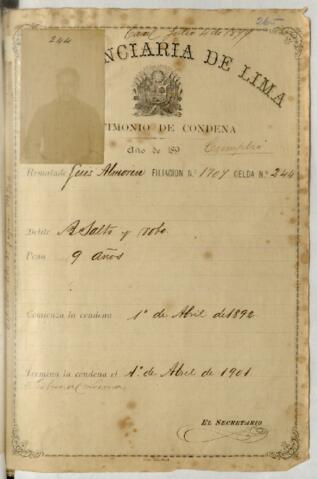 265
244
NCIARIA DE LIMA
TIMONIO DE CONDENA
Año de 189
Cumplió
Rematado FILIACION N.º 1707 CELDA N.º 244
Delito Asalto y robo
Pena 9 años
Comienza la condena 1º de Abril de 1892
Termina la condena el 1º de Abril de 1901
EL SECRETARIO